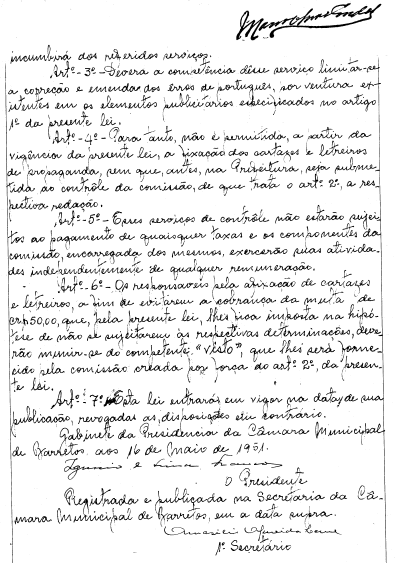 incumbirá dos referidos serviços.
Artº-3º-Deverá a competência dêsse serviço limitar-se
a correção e emenda dos erros de português, por ventura ex-
istentes em os elementos publicitarios especificados no artigo
1º da presente lei.
Artº-4º-Para tanto, não é permitida, a partir da
vigência da presente lei, a fixação dos cartazes e letreiros
de propaganda, sem que, antes, na Prefeitura, seja subme-
tida ao contrôle da comissão, de que trata o artº 2º, a res-
pectiva redação.
Artº-5º-Êsses serviços de contrôle não estarão sujei-
tos ao pagamento de quaisquer taxas e os componentes da
comissão, encarregada dos mesmos, exercerão suas ativida-
des independentemente de qualquer remuneração.
Artº-6º-Os responsáveis pela afixação de cartazes
e letreiros, a fim de evitarem a cobrança da multa de
Cr$50,00, que, pela presente lei, lhes fica imposta na hipó-
tese de não se sujeitarem às respectivas determinações, deve-
rão munir-se do competente "visto", que lhes será forne-
cido pela comissão creada por força do artº 2º, da presen-
te lei.
Artº-7º-Esta lei entrará em vigor na data de sua
publicação, revogadas as disposições em contrário.
Gabinete da Presidencia da Câmara Municipal
de Barretos, aos 16 de Maio de 1951.
O Presidente
Registrada e publicada na Secretaria da Câ-
mara Municipal de Barretos, em a data supra.
1º Secretário